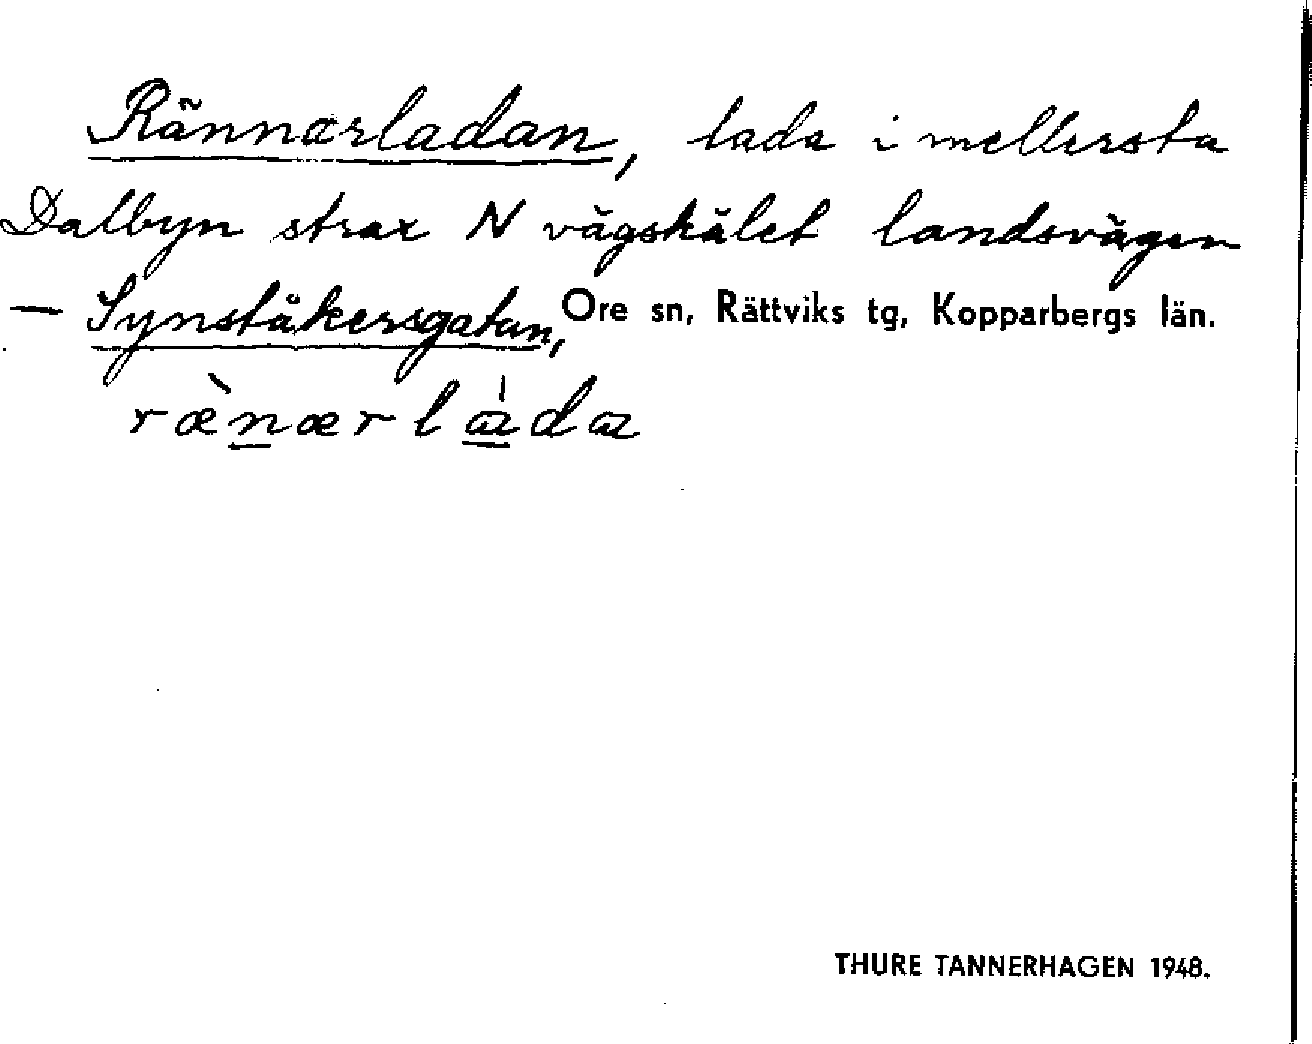 Rännarladan, lada i mellersta
Dalbyn strax N vägskälet landsvägen
— Synståkersgatan, Ore sn, Rättviks tg, Kopparbergs län.
ræ̀nærlàda
THURE TANNERHAGEN 1948.